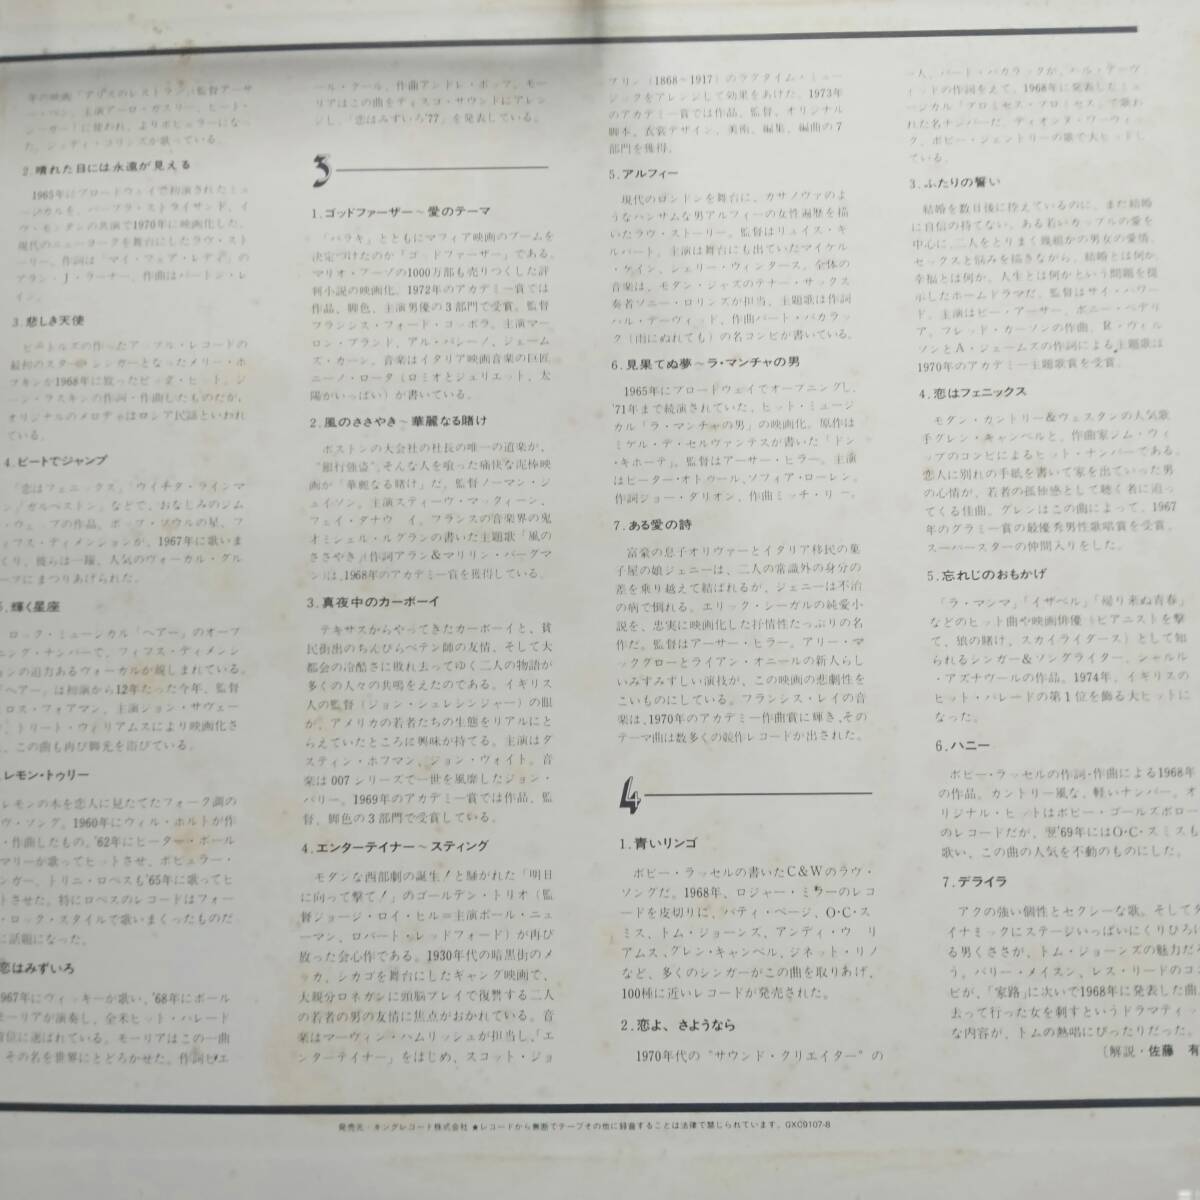 年の映画「アリスのレストラン」(監督アーサ
ー・ペン、主演アーロ・ガスリー、ピート・
シーガー)に使われ、よりポピュラーになっ
た。ジュディ・コリンズが歌っている。
2.晴れた日には永遠が見える
1965年にブロードウェイで初演されたミュ
ージカルを、バーブラ・ストライサンド、イ
ヴ・モンタンの共演で1970年に映画化した。
現代のニューヨークを舞台にしたラヴ・スト
ーリー。作詞は「マイ・フェア・レディ」の
アラン・J・ラーナー、作曲はバートン・レ
イン。
3.悲しき天使
ビートルズの作ったアップル・レコードの
最初のスター・シンガーとなったメリー・ホ
プキンが1968年に放ったビッグ・ヒット。ジ
ーン・ラスキンの作詞・作曲したものだが、
オリジナルのメロディはロシア民謡といわれ
ている。
4.ビートでジャンプ
「恋はフェニックス」「ウイチタ・ラインマ
ン」「ガルベストン」などで、おなじみのジム
・ウェッブの作品。ポップ・ソウルの星、フ
ィフス・ディメンションが、1967年に歌いま
くり、彼らは一躍、人気のヴォーカル・グル
ープにまつりあげられた。
5.輝く星座
ロック・ミュージカル「ヘアー」のオープ
ニング・ナンバーで、フィフス・ディメンシ
ョンの迫力あるヴォーカルが親しまれている。
「ヘアー」は初演から12年たった今年、監督
ミロス・フォアマン、主演ジョン・サヴェー
ジ、トリート・ウィリアムスにより映画化さ
れ、この曲も再び脚光を浴びている。
レモン・トゥリー
レモンの木を恋人に見たてたフォーク調の
ラヴ・ソング。1960年にウィル・ホルトが作
・作曲したもの。'62年にピーター・ポール
マリーが歌ってヒットさせ、ポピュラー・
ンガー、トリニ・ロペスも'65年に歌ってヒ
トさせた。特にロペスのレコードはフォー
・ロック・スタイルで歌いまくったものだ
に話題になった。
恋はみずいろ
1967年にヴィッキーが歌い、'68年にポール
モーリアが演奏し、全米ヒット・パレード
首位に選ばれている。モーリアはこの一曲
、その名を世界にとどろかせた。作詞ピエ
ール・クール、作曲アンドレ・ポップ。モー
リアはこの曲をディスコ・サウンドにアレン
ジし、「恋はみずいろ'77」を発表している。
3
1.ゴッドファーザー～愛のテーマ
「バラキ」とともにマフィア映画のブームを
決定づけたのが「ゴッドファーザー」である。
マリオ・プーゾの1000万部も売りつくした評
判小説の映画化。1972年のアカデミー賞では
作品、脚色、主演男優の3部門で受賞。監督
フランシス・フォード・コッポラ。主演マー
ロン・ブランド、アル・パシーノ、ジェーム
ズ・カーン。音楽はイタリア映画音楽の巨匠
ニーノ・ロータ(ロミオとジュリエット、太
陽がいっぱい)が書いている。
2.風のささやき～華麗なる賭け
ボストンの大会社の社長の唯一の道楽が、
“銀行強盗”。そんな人を喰った痛快な泥棒映
画が「華麗なる賭け」だ。監督ノーマン・ジ
ュイソン。主演スティーヴ・マックィーン、
フェイ・ダナウェイ。フランスの音楽界の鬼
オミシェル・ルグランの書いた主題歌「風の
ささやき」(作詞アラン&マリリン・バーグマ
ン)は、1968年のアカデミー賞を獲得している。
3.真夜中のカーボーイ
テキサスからやってきたカーボーイと、貧
民街出のちんぴらペテン師の友情、そして大
都会の冷酷さに敗れ去ってゆく二人の物語が
多くの人々の共鳴をえたのである。イギリス
人の監督(ジョン・シュレシンジャー)の眼
が、アメリカの若者たちの生態をリアルにと
らえていたところに興味が持てる。主演はダ
スティン・ホフマン、ジョン・ヴォイト。音
楽は007シリーズで一世を風靡したジョン・
バリー。1969年のアカデミー賞では作品、監
督、脚色の3部門で受賞している。
4.エンターテイナー～スティング
モダンな西部劇の誕生!と騒がれた「明日
に向って撃て!」のゴールデン・トリオ(監
督ジョージ・ロイ・ヒル=主演ポール・ニュ
ーマン、ロバート・レッドフォード)が再び
放った会心作である。1930年代の暗黒街のメ
ッカ、シカゴを舞台にしたギャング映画で、
大親分ロネガンに頭脳プレイで復讐する二人
の若者の男の友情に焦点がおかれている。音
楽はマーヴィン・ハムリッシュが担当し、「エ
ンターテイナー」をはじめ、スコット・ジョ
プリン(1868～1917)のラグタイム・ミュー
ジックをアレンジして効果をあげた。1973年
のアカデミー賞では作品、監督、オリジナル
脚本、衣裳デザイン、美術、編集、編曲の7
部門を獲得。
5.アルフィー
現代のロンドンを舞台に、カサノヴァのよ
うなハンサムな男アルフィーの女性遍歴を描
いたラヴ・ストーリー。監督はリュイス・ギ
ルバート。主演は舞台にも出ていたマイケル
・ケイン、シェリー・ウィンタース。全体の
音楽は、モダン・ジャズのテナー・サックス
奏者ソニー・ロリンズが担当、主題歌は作詞
ハル・デーヴィッド、作曲バート・バカラッ
ク(雨にぬれても)の名コンビが書いている。
6.見果てぬ夢～ラ・マンチャの男
1965年にブロードウェイでオープニングし、
'71年まで続演されていた、ヒット・ミュージ
カル「ラ・マンチャの男」の映画化。原作は
ミゲル・デ・セルヴァンテスが書いた「ドン
・キホーテ」。監督はアーサー・ヒラー。主演
はピーター・オトゥール、ソフィア・ローレン。
作詞ジョー・ダリオン、作曲ミッチ・リー。
7.ある愛の詩
富豪の息子オリヴァーとイタリア移民の菓
子屋の娘ジェニーは、二人の常識外の身分の
差を乗り越えて結ばれるが、ジェニーは不治
の病で倒れる。エリック・シーガルの純愛小
説を、忠実に映画化した抒情性たっぷりの名
作だ。監督はアーサー・ヒラー。アリー・マ
ックグローとライアン・オニールの新人らし
いみずみずしい演技が、この映画の悲劇性を
こいものにしている。フランシス・レイの音
楽は、1970年のアカデミー作曲賞に輝き、その
テーマ曲は数多くの競作レコードが出された。
4
1.青いリンゴ
ボビー・ラッセルの書いたC&Wのラヴ・
ソングだ。1968年、ロジャー・ミラーのレコ
ードを皮切りに、パティ・ペイジ、O・C・ス
ミス、トム・ジョーンズ、アンディ・ウィリ
アムス、グレン・キャンベル、ジネット・リノ
など、多くのシンガーがこの曲を取りあげ、
100種に近いレコードが発売された。
2.恋よ、さようなら
1970年代の“サウンド・クリエイター”の
一人、バート・バカラックが、ハル・デーヴ
ィッドの作詞をえて、1968年に発表したミュ
ージカル「プロミセス・プロミセス」で歌わ
れた名ナンバーだ。ディオンヌ・ワーウィッ
ク、ボビー・ジェントリーの歌で大ヒットし
ている。
3.ふたりの誓い
結婚を数日後に控えているのに、まだ結婚
に自信の持てない、ある若いカップルの愛を
中心に、二人をとりまく幾組かの男女の愛情、
セックスと悩みを描きながら、結婚とは何か、
幸福とは何か、人生とは何かという問題を提
示したホームドラマだ。監督はサイ・ハワー
ド。主演はビー・アーサー、ボニー・ベデリ
ア。フレッド・カーソンの作曲、R・ウィル
ソンとA・ジェームズの作詞による主題歌は
1970年のアカデミー主題歌賞を受賞。
4.恋はフェニックス
モダン・カントリー&ウェスタンの人気歌
手グレン・キャンベルと、作曲家ジム・ウェ
ッブのコンビによるヒット・ナンバーである。
恋人に別れの手紙を書いて家を出ていった男
の心情が、若者の孤独感として聴く者に迫っ
てくる佳曲。グレンはこの曲によって、1967
年のグラミー賞の最優秀男性歌唱賞を受賞、
スーパースターの仲間入りをした。
5.忘れじのおもかげ
「ラ・マンマ」「イザベル」「帰り来ぬ青春」
などのヒット曲や映画俳優(ピアニストを撃
て、狼の賭け、スカイライダース)として知
られるシンガー&ソングライター、シャルル
・アズナヴールの作品。1974年、イギリスの
ヒット・パレードの第1位を飾る大ヒットに
なった。
6.ハニー
ボビー・ラッセルの作詞・作曲による1968年
の作品。カントリー風な、軽いナンバー。オ
リジナル・ヒットはボビー・ゴールズボロー
のレコードだが、翌'69年にはO・C・スミスも
歌い、この曲の人気を不動のものにした。
7.デライラ
アクの強い個性とセクシーな歌。そしてダ
イナミックにステージいっぱいにくりひろげ
る男くささが、トム・ジョーンズの魅力だろ
う。バリー・メイスン、レス・リードのコン
ビが、「家路」に次いで1968年に発表した曲。
去って行った女を刺すというドラマティッ
な内容が、トムの熱唱にぴったりだった。
〔解説・佐藤 有
発売元・キングレコード株式会社 ★レコードから無断でテープその他に録音することは法律で禁じられています。GXC9107-8